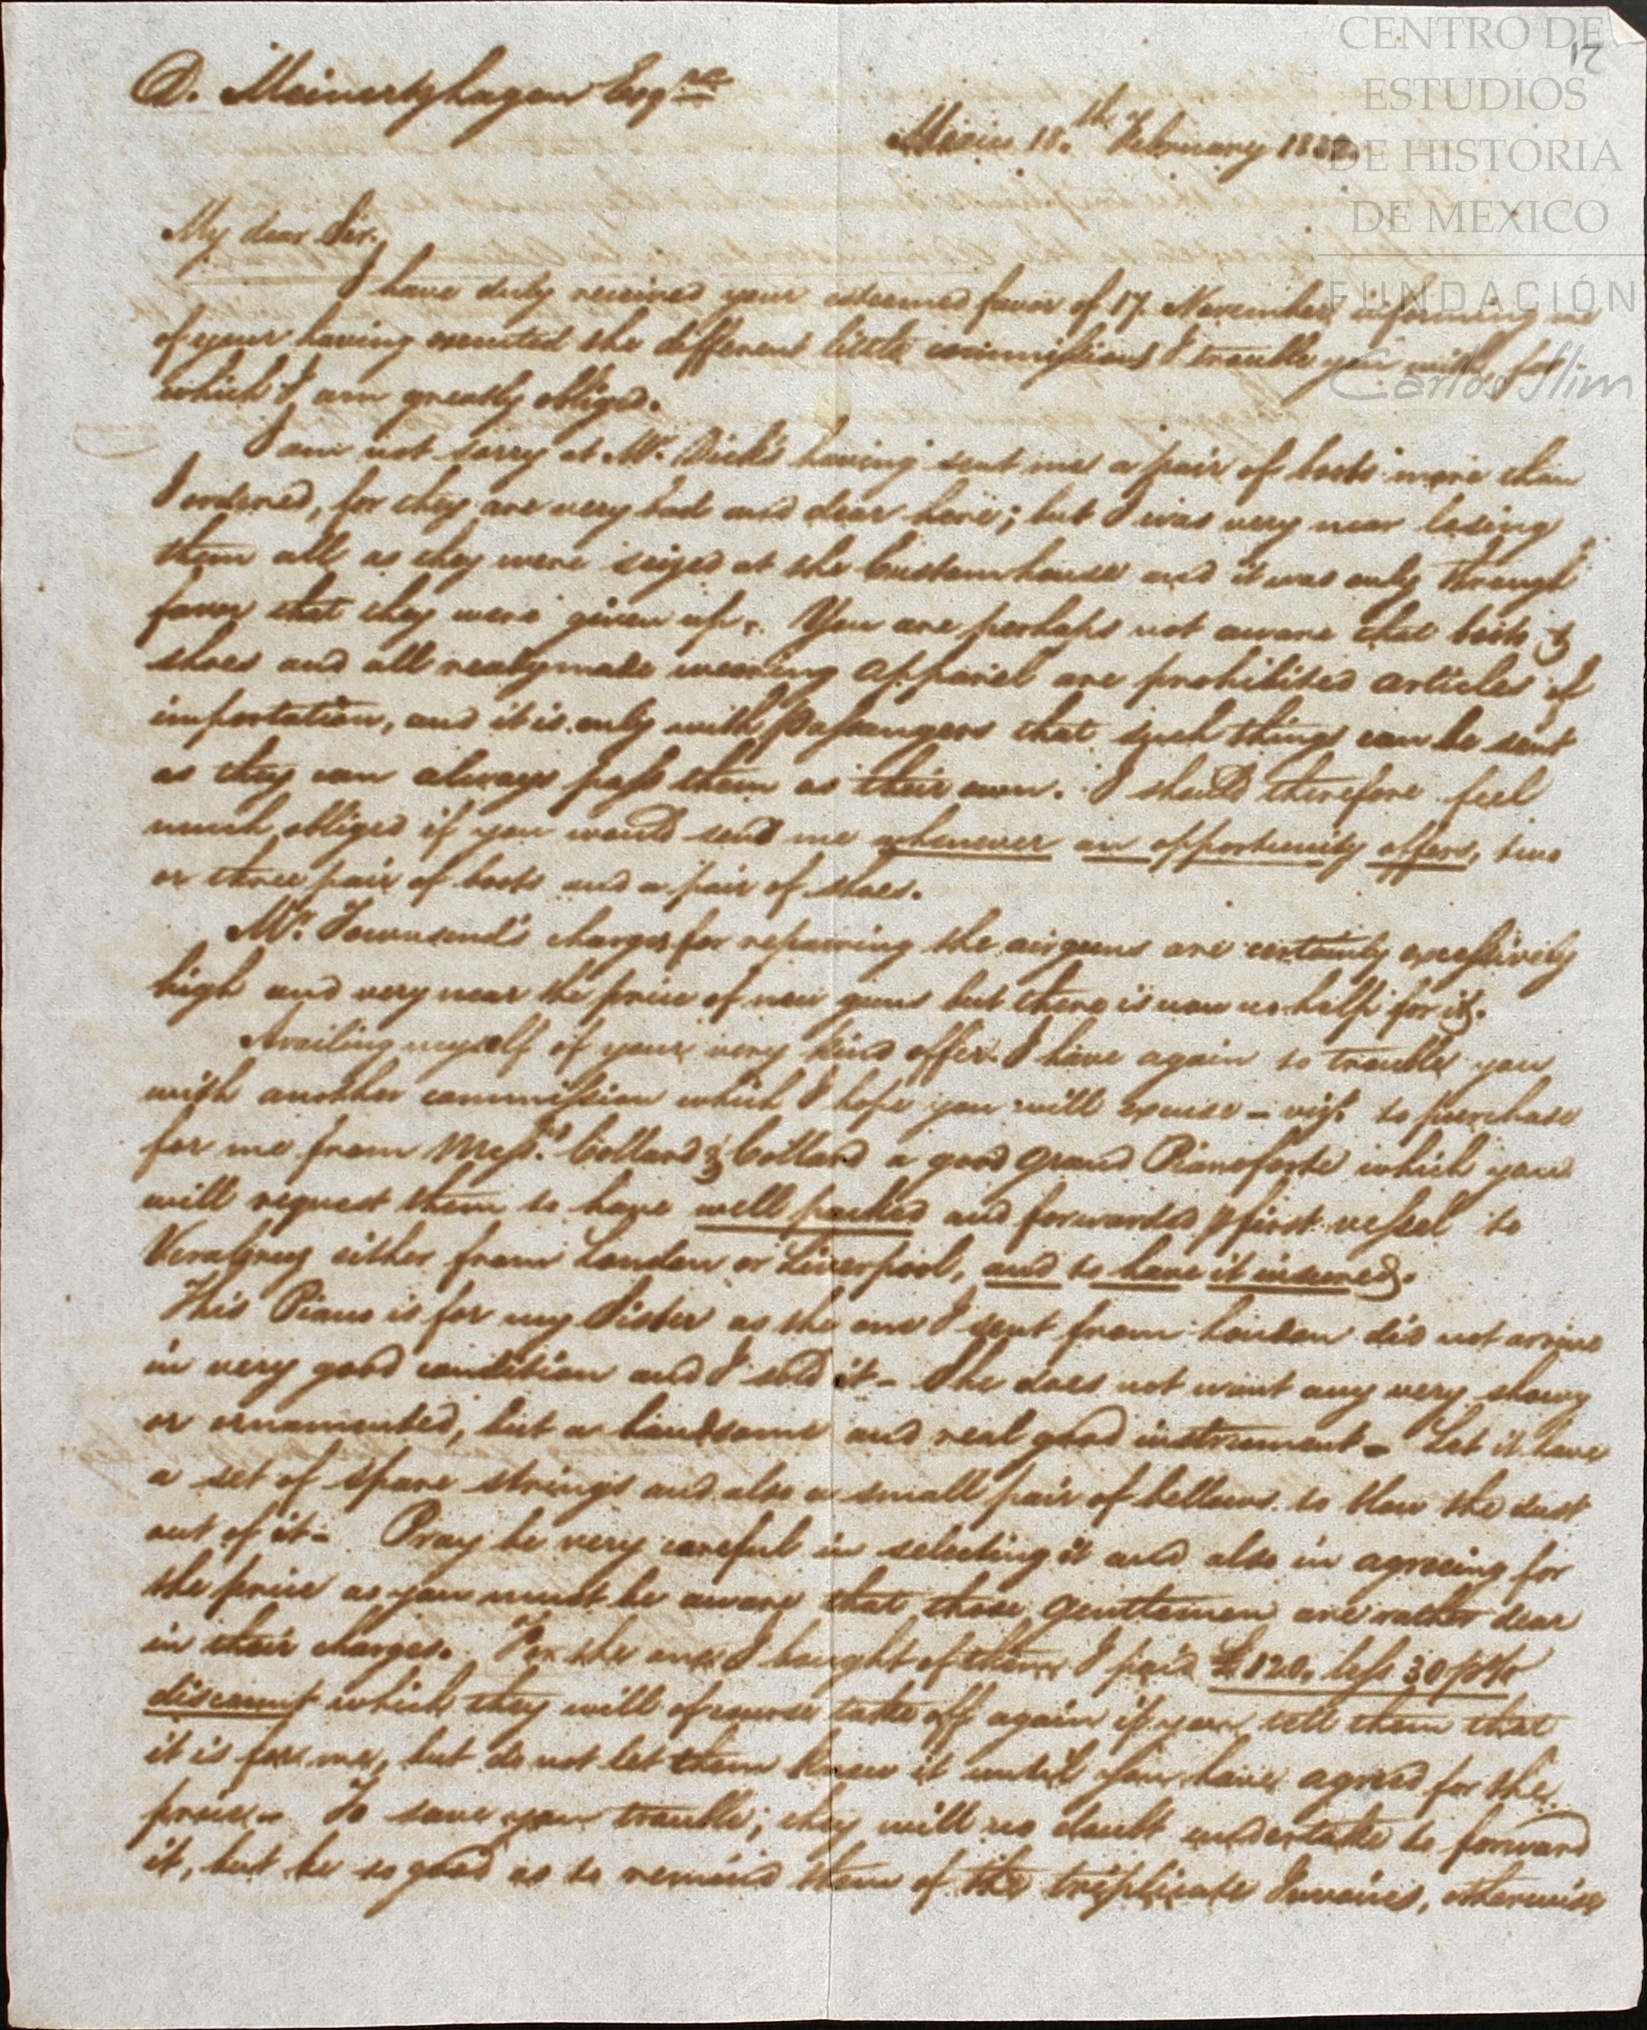 CENTRO DE
ESTUDIOS
DE HISTORIA
DE MEXICO
FUNDACIÓN
Carlos Slim
17
D. Meinertzhagen Esqre
Mexico 18.th February
My dear Sir.
I have duly received your esteemed favor of 17. November informing me
of your having executed the different little commissions I trouble you with, for
which I am greatly obliged.
I am not sorry at Mr. Dick's having sent me a pair of boots more than
I ordered, for they are very bad and dear here; but I was very near losing
them all as they were seized at the Customhouse and it was only through
favor that they were given up. You are perhaps not aware that boots &
shoes and all readymade wearing apparel are prohibited articles of
importation, and it is only with Passangers that such things can be sent
as they can always pass them as their own. I should therefore feel
much obliged if you would send me whenever an opportunity offers, two
or three pair of boots and a pair of shoes.
Mr. Townsend's charges for reparring the airguns are certainly excessively
high and very near the price of new guns but there is now no help for it.
Availing myself of your very kind offer I have again to trouble you
with another commission which I hope you will excuse – viz. to purchase
for me from Messrs. Collard & Collard a good grand Pianoforte which you
will request them to have well packed and forwarded p first vessel to
Veracruz either from London or Liverpool, and to have it insured.
This Piano is for my Sister as the one I sent from London did not arrive
in very good condition and I sold it – She does not want any very showy
or ornamented, but a handsome and real good instrument – Let it have
a set of spare strings and also a small pair of bellows to blow the dust
out of it – Pray be very careful in selecting it and also in agreeing for
the price as you must be aware that those gentlemen are rather dear
in their charges. For the one I bought of them I paid £120. less 30 p%
discount which they will of course take off again if you tell them that
it is for me, but do not let them know it until you have agreed for the
price – To save you trouble; they will no doubt undertake to forward
it, but be so good as to remind them of the triplicate Invoices, otherwise